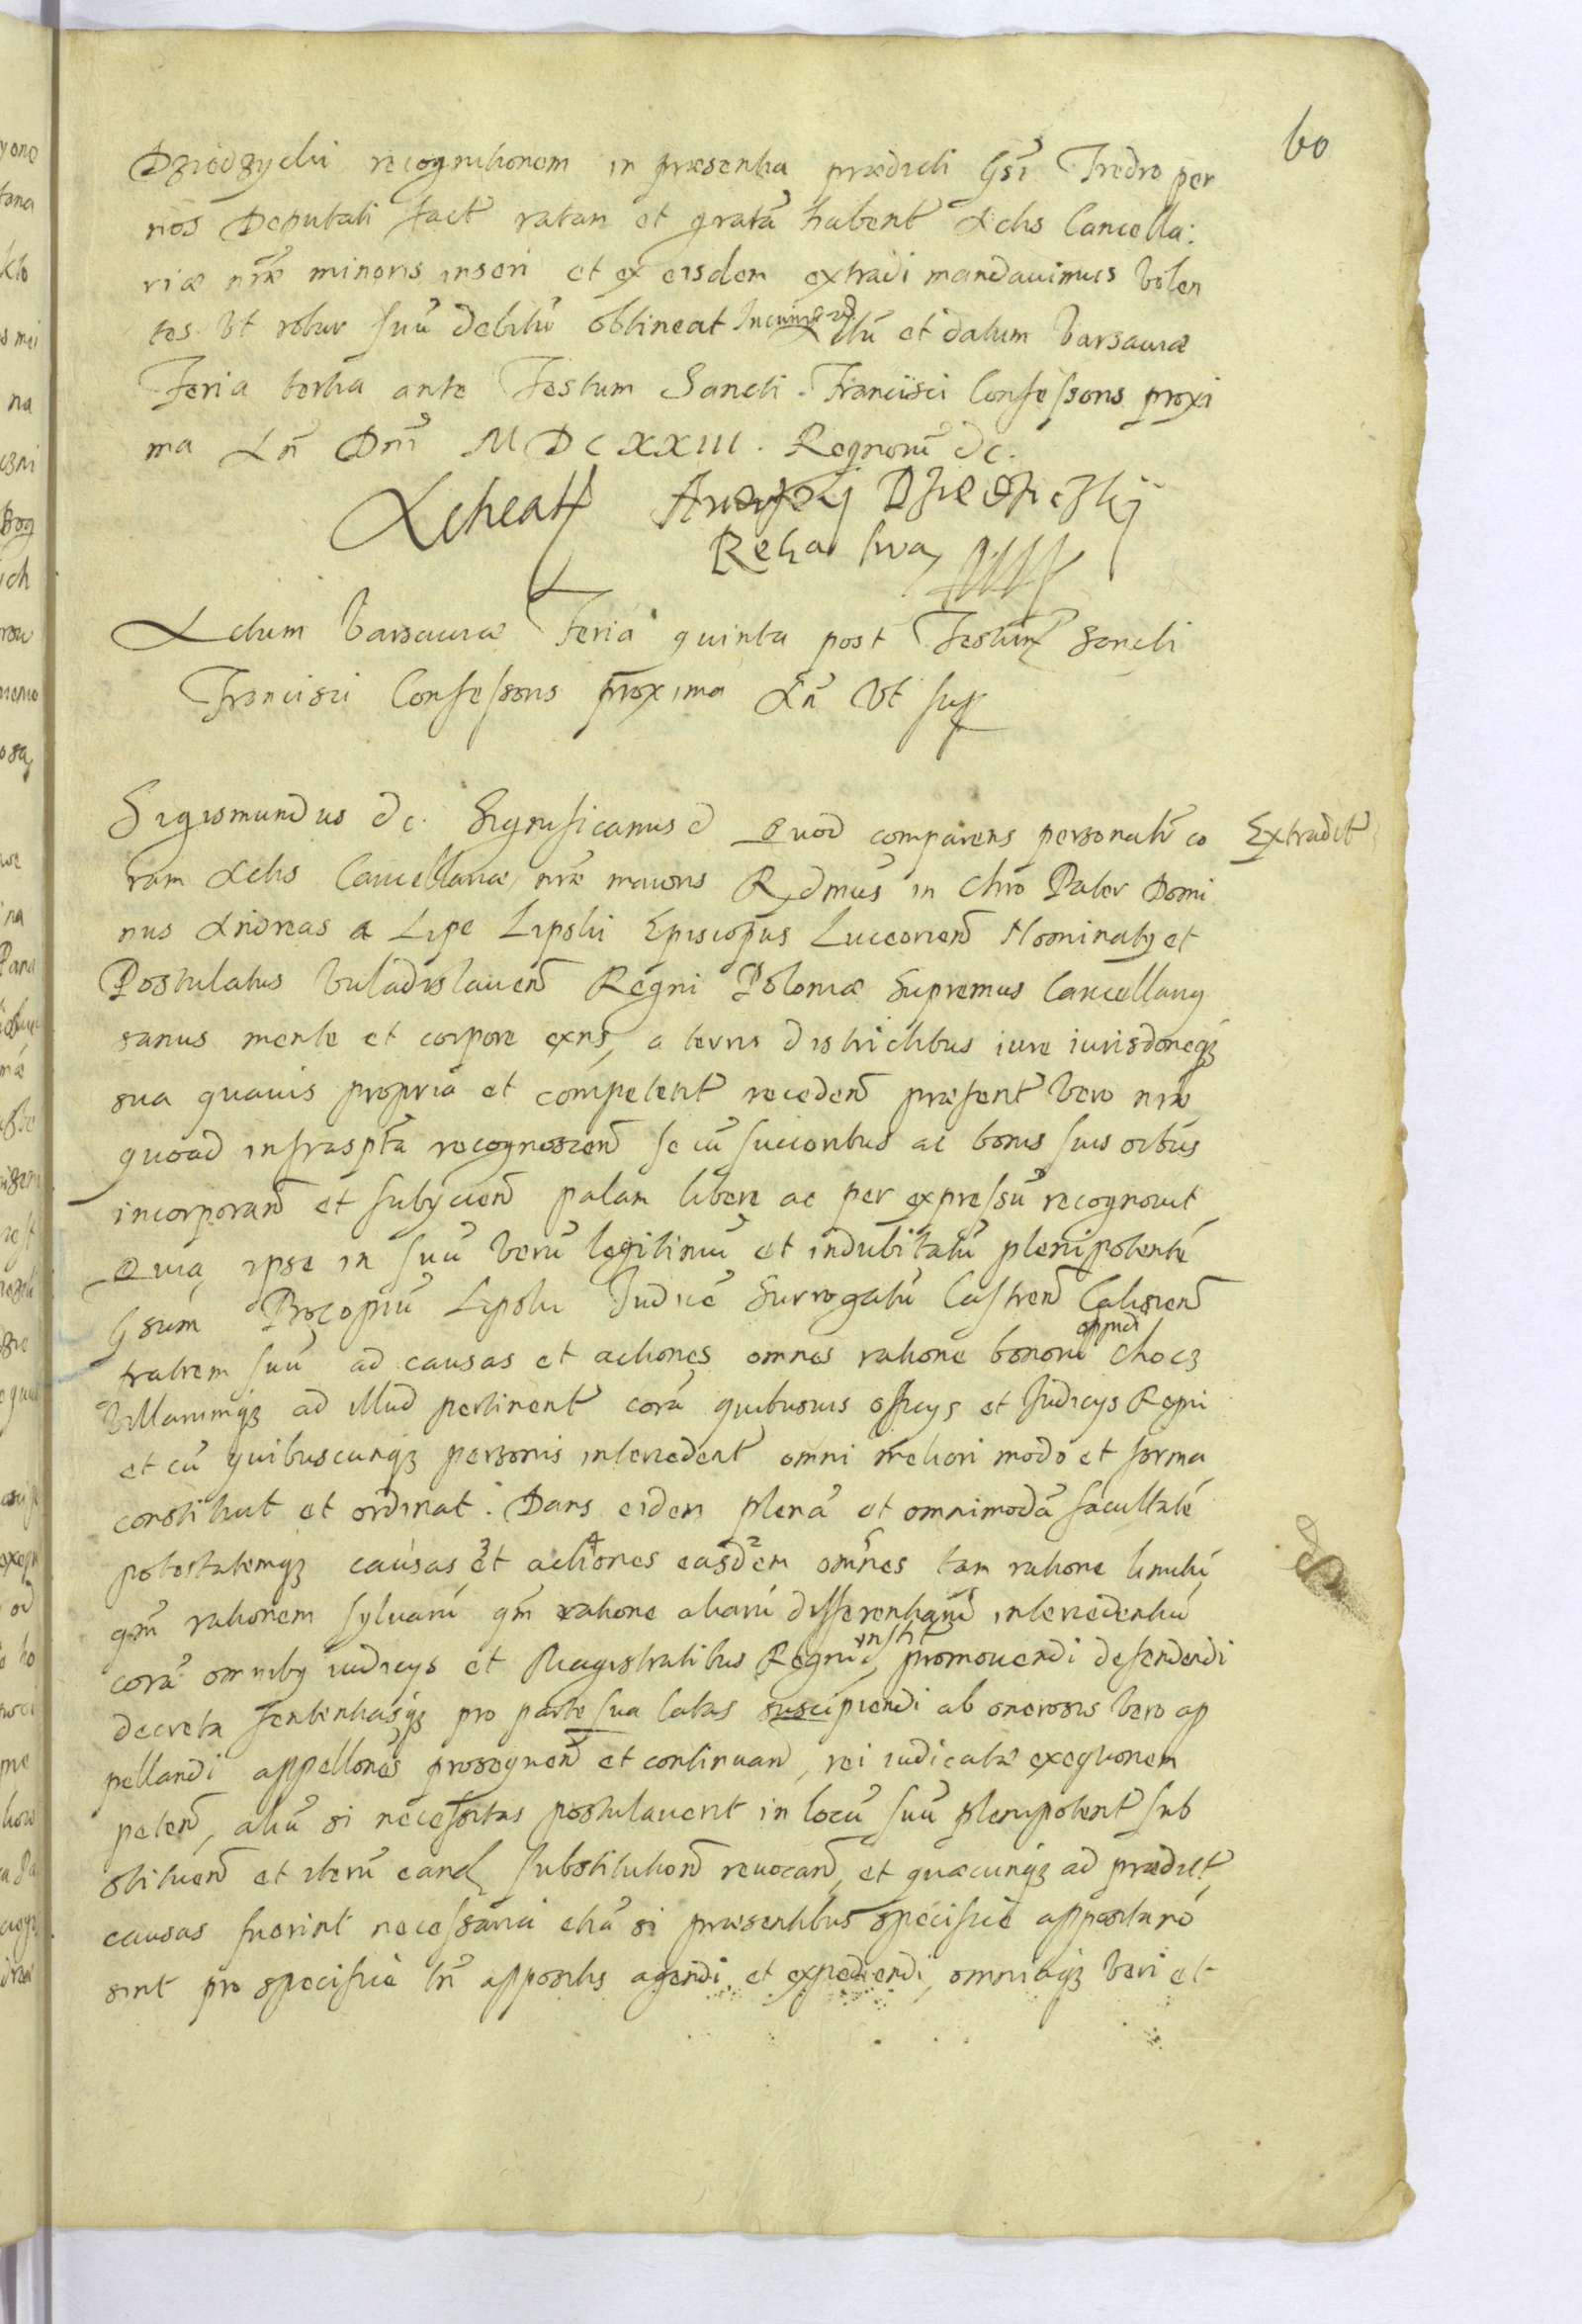 60
Dziedzycki recognitionem in præsentia prædicti Gsi Fredro per
nos Deputati fact ratam et gratā habent Actis Cancella:
riæ nræ minoris inseri et ex eisdem extradi mandauimus Volen
tes Vt robur suū debitū obtineat In cuius rei Actū et datum Varsauiæ
Feria tertia ante Festum Sancti Francisci Confessoris proxi
ma An Dni MDCXXIII. Regnorū &c.
Ręką swą
Actum Varsauiæ Feria quinta post Festum Sancti
Francisci Confessoris proxima An Vt sup
Sigismundus &c. Significamus & Quod comparens personalr co
Extradit
ram Actis Cancellariæ nræ maioris Rdmus in Chro Pater Domi
nus Andreas a Lipe Lipski Episcopus Luceorien Nominatus et
Postulatus Vuladislauien Regni Poloniæ Supremus Cancellarius
sanus mente et corpore exns, a terris districtibus iure iurisdoneqz
sua quauis propria et competent receden præsent Vero nræ
quoad infrasptā recognoscen se cū succoribus ac bonis suis oībus
incorporan et subijcien palam libere ac per expressū recognouit
Quia ipse in suū Verū legitimū et indubitatū plenipotentē
Gsum Procopiū Lipski Iudicē Surrogatū Castren Calisien
fratrem suū ad causas et actiones omnes ratione bonorū oppidi Chocz
Villarumqz ad illud pertinent corā quibusuis officijs et Iudicijs Regni
et cū quibuscunqz personis intercedent omni meliori modo et forma
constituit et ordinat. Dans eidem plenā et omnimodā facultatē
potestatemqz causas 3 et actiones 4 easdem 2 omnes 5 tam ratione limitū
qm rationem syluarū qm ratione aliarū differentiarū intercedentiū
corā omnibus iudicijs et Magistratibus Regni instit promouendi defendendi
decreta sententiasqz pro parte sua latas suscipiendi ab onerosis Vero ap
pellandi appellones prosequen et continuan, rei iudicatæ exequonem
peten, aliū si necessitas postulauerit in locū suū plenipotent sub
stituen et iterū eand substitution reuocan, et quæcunqz ad prædict
causas fuerint necessaria etiā si præsentibus specifice apposita nō
sint pro specifice tn appositis agendi et expediendi, omniaqz Veri et